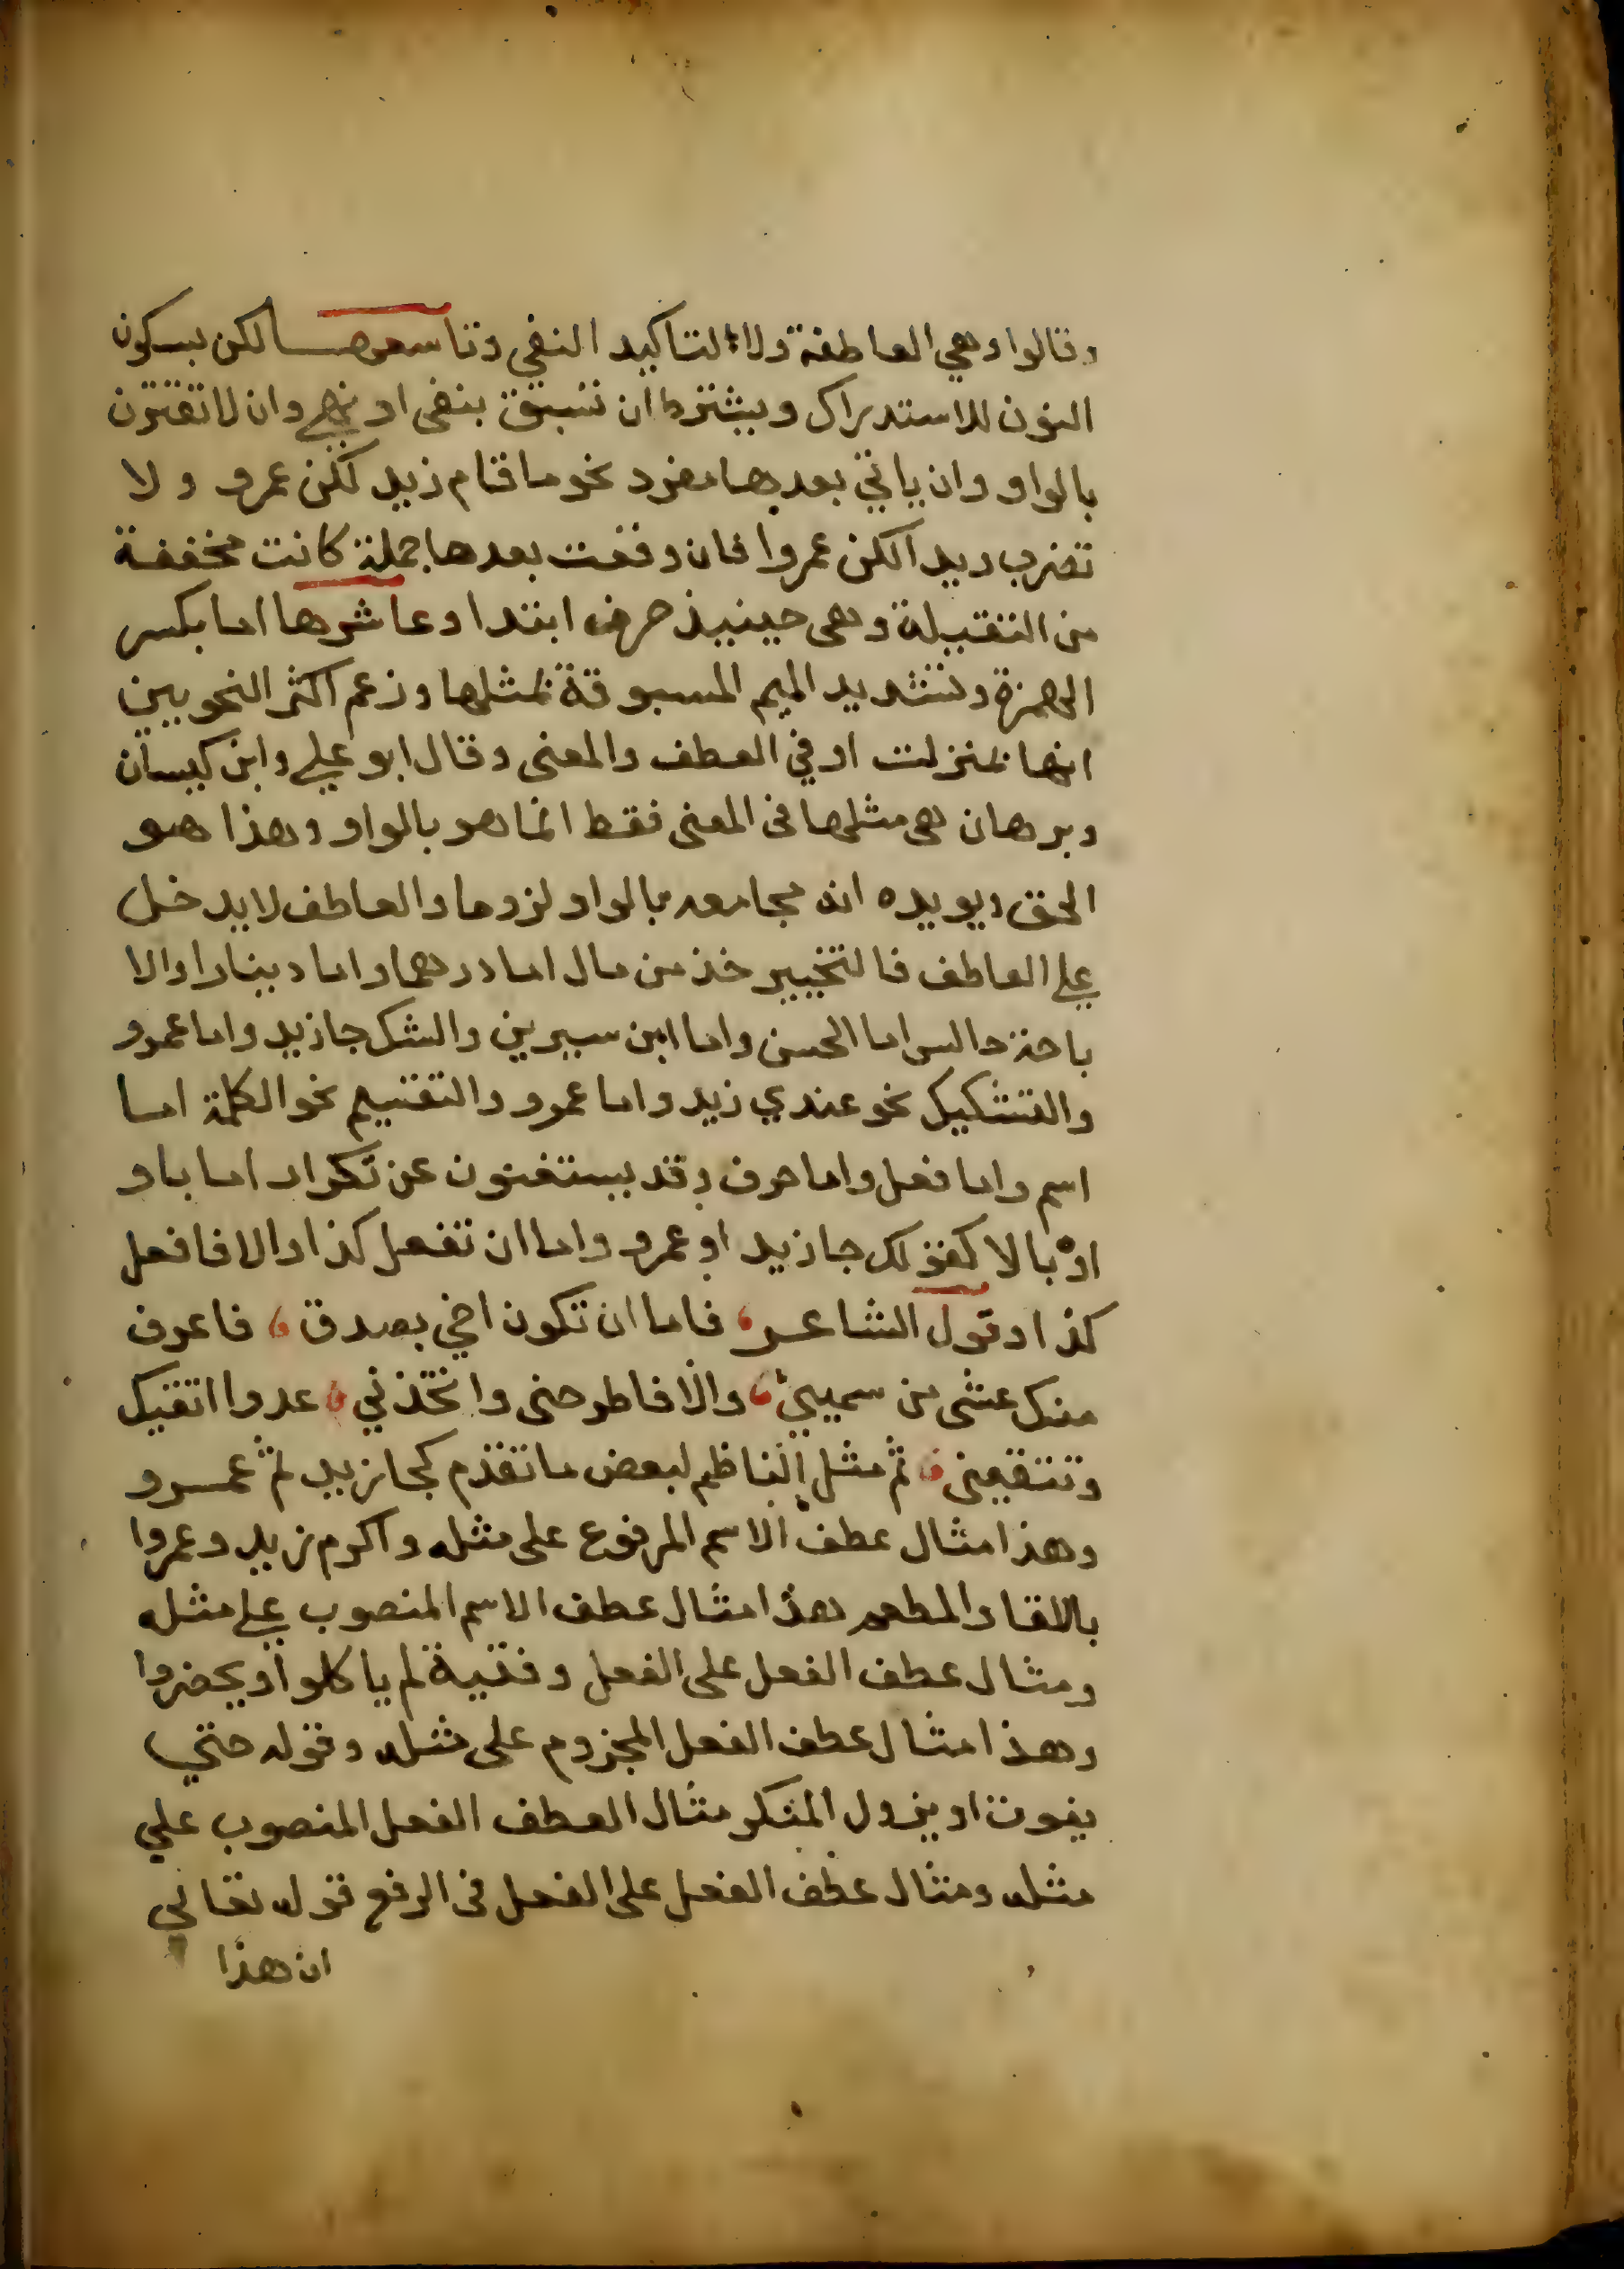 وقالوا وهي العاطفة ولا لتاكيد النفي وتاسعها لكن بسكون
النون للاستدراك ويشترط ان تسبق بنفي او نهي وان لا تقترن
بالواو وان ياتي بعدها مفرد نحو ما قام زيد لكن عمرو ولا
تضرب زيدا لكن عمروا فان وقعت بعدها جملة كانت مخففة
من الثقيلة وهي حينيذ حرف ابتدا وعاشرها اما بكسر
الهمزة وتشديد الميم المسبوقة بمثلها وزعم اكثر النحويين
انها بمنزلت او في العطف والمعنى وقال ابو علي وابن كيسان
وبرهان هي مثلها في المعنى فقط انما هو بالواو وهذا هو
الحق ويويده انه مجامعه بالواو لزوما والعاطف لا يدخل
علي العاطف فالتخيير خذ من مال اما درهما واما دينارا والا
باحة جالس اما الحسن واما ابن سيرين والشك جا زيد واما عمرو
والتشكيك نحو عندي زيد واما عمرو والتقسيم نحو الكلمة اما
اسم واما فعل واما حرف وقد يستغنون عن تكرار اما باو
او بالا كقولك جا زيد او عمرو واما ان تفعل كذا والا فافعل
كذا وقول الشاعر، فاما ان تكون اخي بصدق، فاعرف
منك غثي من سميني، والا فاطرحني واتخذني، عدوا اتقيك
وتتقيني، ثم مثل الناظم لبعض ما تقدم كجا زيد ثم عمرو
وهذا مثال عطف الاسم المرفوع على مثله واكرم زيد وعمروا
باللقا والمطعم هذا مثال عطف الاسم المنصوب علي مثله
ومثال عطف الفعل على الفعل وفتية لم ياكلوا او يحضروا
وهذا مثال عطف الفعل المجزوم على مثله وقوله حتي
يفوت او يزول المنكر مثال العطف الفعل المنصوب علي
مثله ومثال عطف الفعل على الفعل في الرفع قوله تعالي
ان هذا